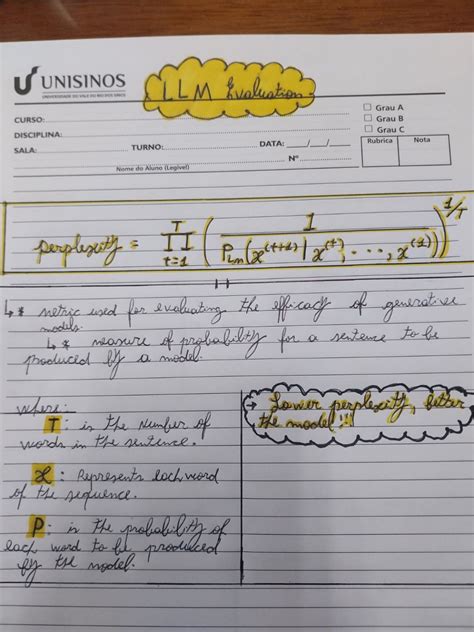 UNISINOS
UNIVERSIDADE DO VALE DO RIO DOS SINOS
LLM Evaluation
CURSO:
DISCIPLINA:
SALA: TURNO: DATA: __/__/__
Nº
Nome do Aluno (Legível)
Grau A
Grau B
Grau C
Rubrica Nota
perplexity = ∏_{t=1}^{T} (1 / P_Lm(x^(t+1) | x^(t), ..., x^(1)))^{1/T}
↳ * metric used for evaluating the efficacy of generative
models.
↳ * measure of probability for a sentence to be
produced by a model.
where:
T: is the number of
words in the sentence.
X: Represents each word
of the sequence.
P: is the probability of
each word to be produced
by the model.
→ Lower perplexity, better
the model!!